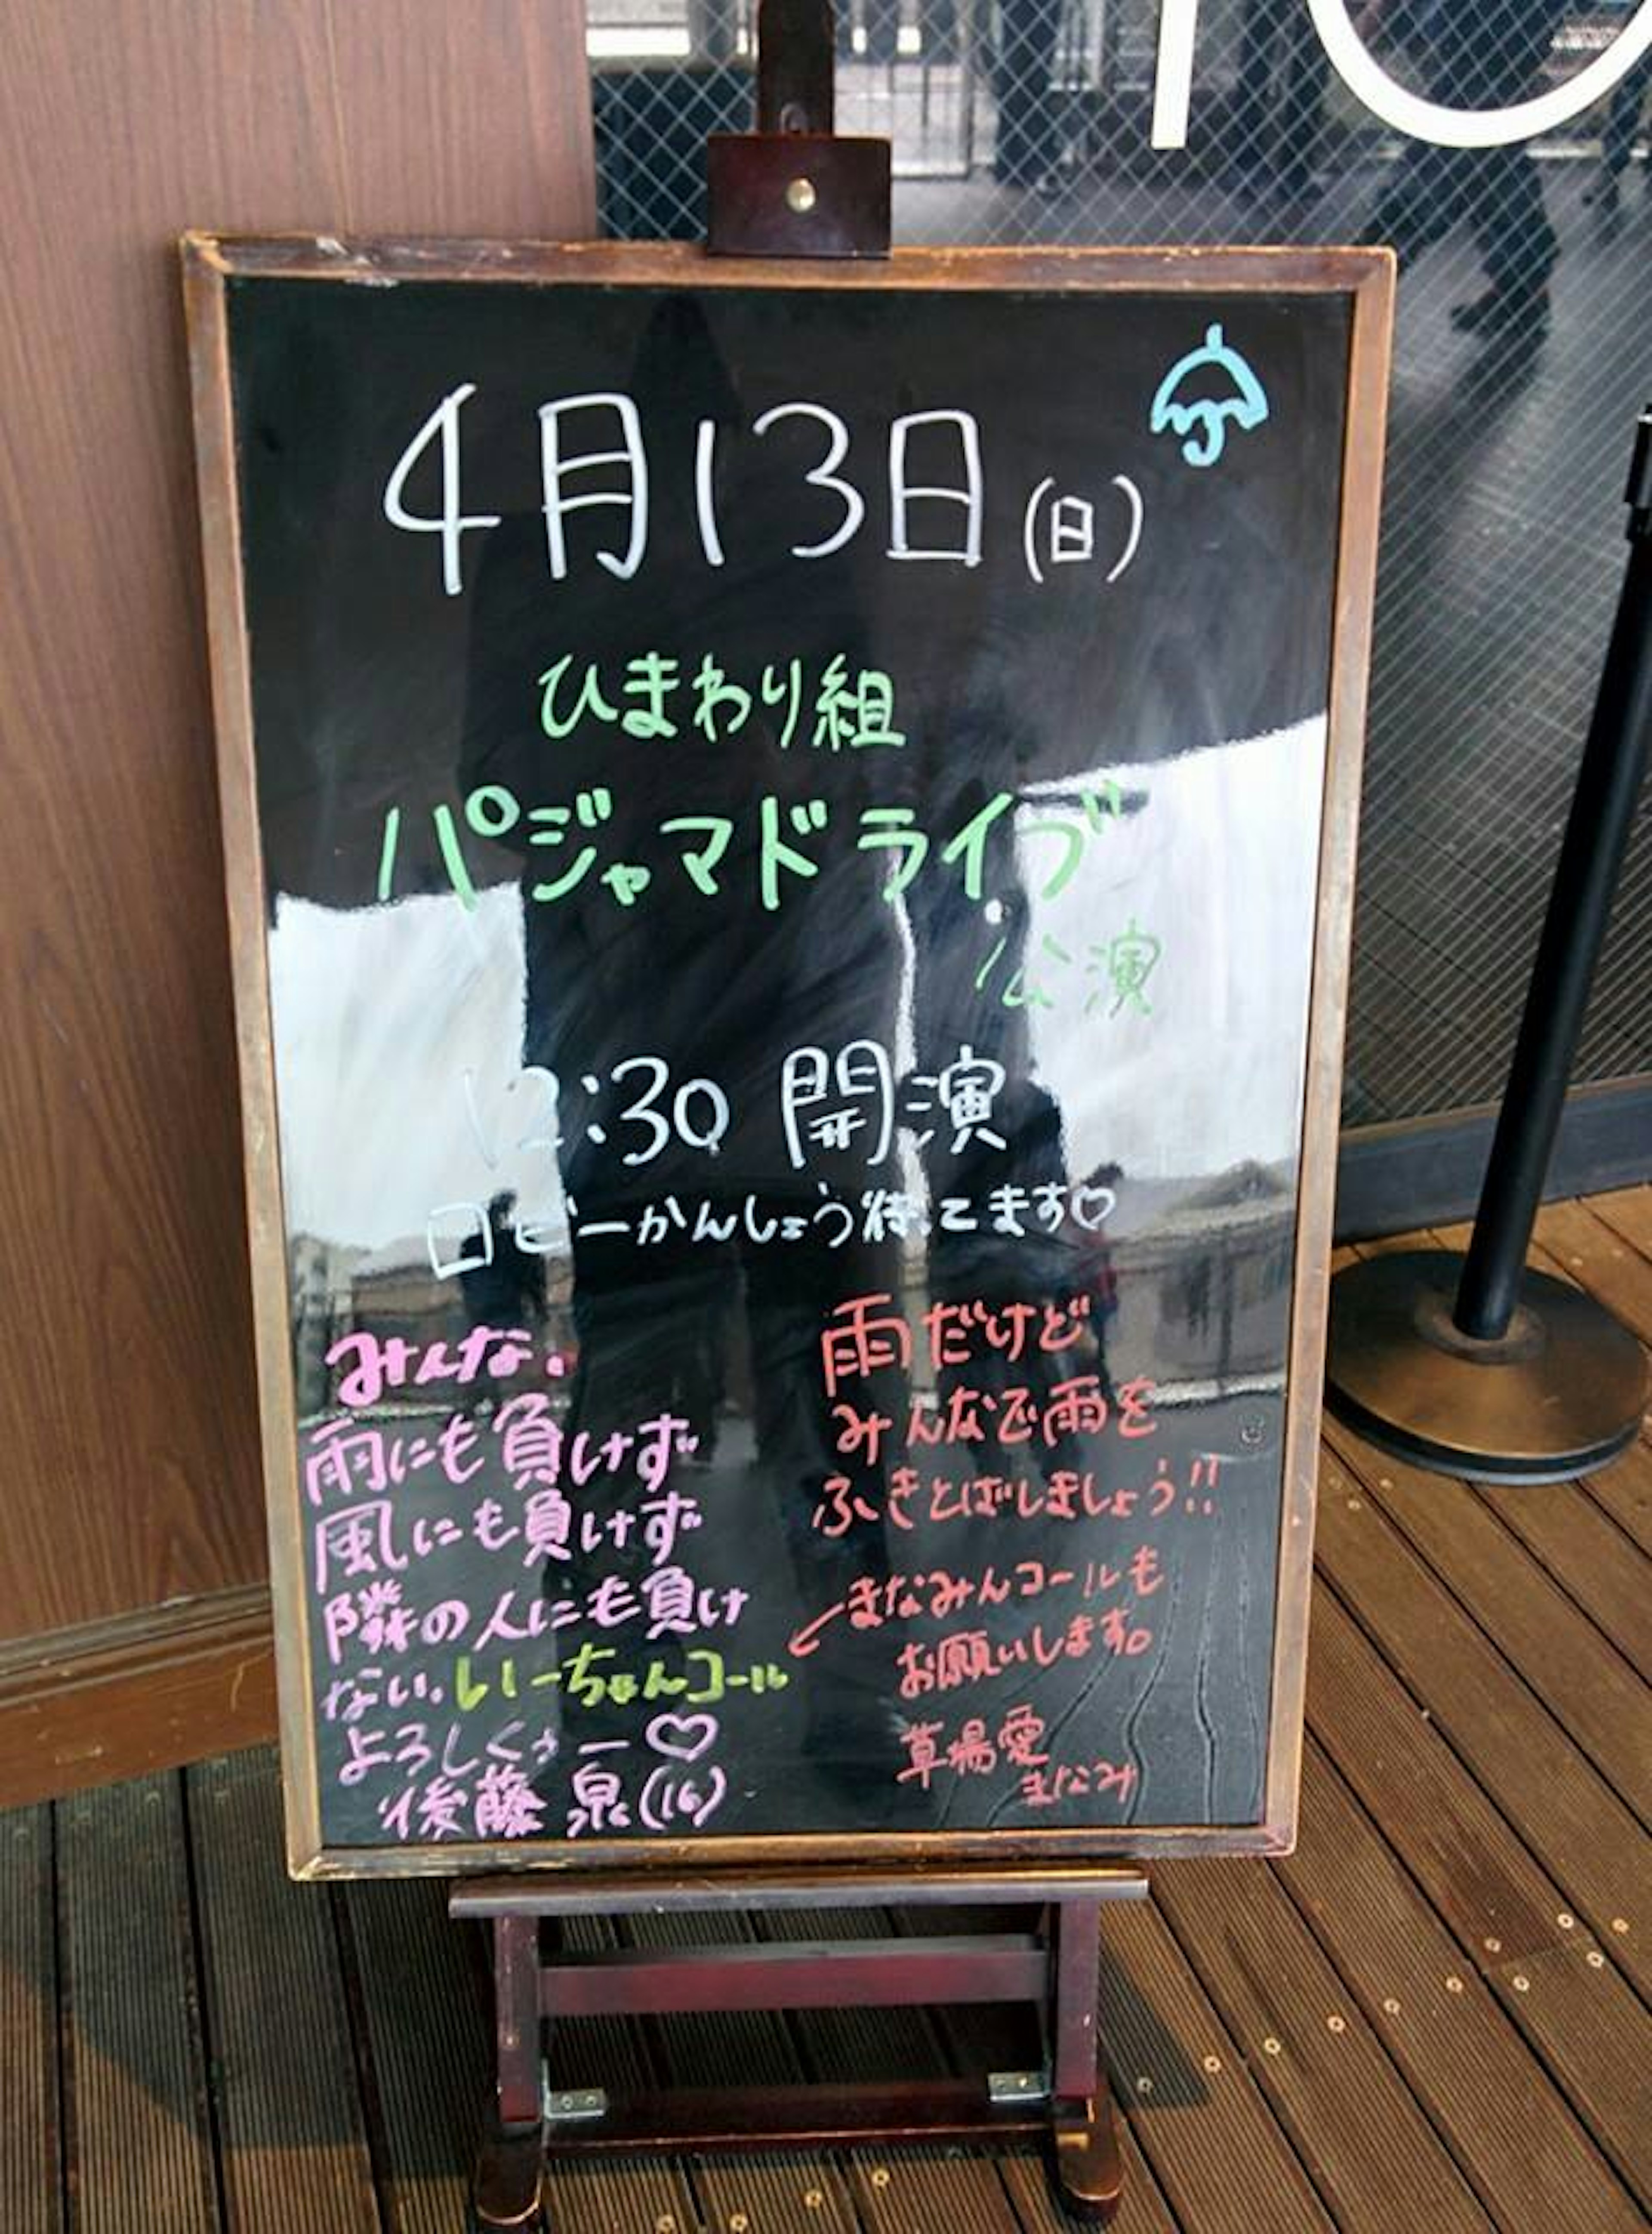 4月13日(日)
ひまわり組
パジャマドライブ
公演
12:30 開演
ロビーかんしょう待ってます♡
みんな。
雨にも負けず
風にも負けず
隣の人にも負け
ない。いーちゃんコール
よろしくぅー♡
後藤 泉(16)
雨だけど
みんなで雨を
ふきとばしましょう!!
まなみんコールも
お願いします。
草場愛
まなみ